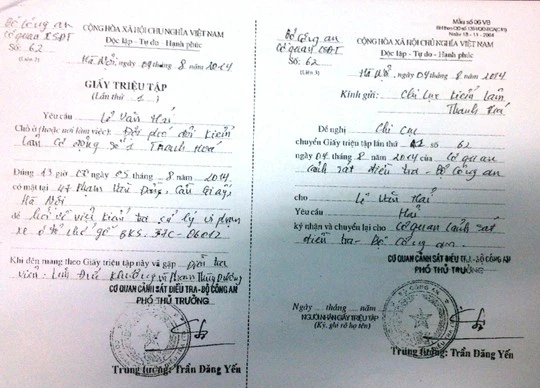 Bộ Công an
Cơ quan CSĐT
Số: 62
(Liên 2)
CỘNG HÒA XÃ HỘI CHỦ NGHĨA VIỆT NAM
Độc lập - Tự do - Hạnh phúc
Hà Nội, ngày 04 tháng 8 năm 2014
GIẤY TRIỆU TẬP
(Lần thứ 1)
Yêu cầu Lê Văn Hải
Chỗ ở (hoặc nơi làm việc): Đội phó đội kiểm
lâm cơ động số 1 Thanh Hoá
Đúng 13 giờ 00 ngày 05 tháng 8 năm 2014
có mặt tại 47 Phạm Văn Đồng, Cầu Giấy,
Hà Nội
để hỏi về việc kiểm tra xử lý vi phạm
xe ô tô chở gỗ BKS. 37C - 06012
Khi đến mang theo Giấy triệu tập này và gặp Điều tra
viên: Khương và Phạm Thùy Dương
CƠ QUAN CẢNH SÁT ĐIỀU TRA-BỘ CÔNG AN
PHÓ THỦ TRƯỞNG
Trung tướng: Trần Đăng Yến
Mẫu số 06 V8
Ngày 18 - 11 - 2004
Bộ Công an
Cơ quan CSĐT
Số: 62
(Liên 3)
CỘNG HÒA XÃ HỘI CHỦ NGHĨA VIỆT NAM
Độc lập - Tự do - Hạnh phúc
Hà Nội, ngày 04 tháng 8 năm 2014
Kính gửi: Chi cục Kiểm lâm
Thanh Hoá
Đề nghị Chi cục
chuyển Giấy triệu tập lần thứ 1 số 62
ngày 04 tháng 8 năm 2014 của Cơ quan
cảnh sát điều tra - Bộ Công an
cho Lê Văn Hải
Yêu cầu Hải
ký nhận và chuyển lại cho Cơ quan cảnh sát
điều tra - Bộ Công an.
CƠ QUAN CẢNH SÁT ĐIỀU TRA-BỘ CÔNG AN
PHÓ THỦ TRƯỞNG
Ngày ... tháng ... năm
NGƯỜI NHẬN GIẤY TRIỆU TẬP
(Ký, ghi rõ họ tên)
Trung tướng: Trần Đăng Yến